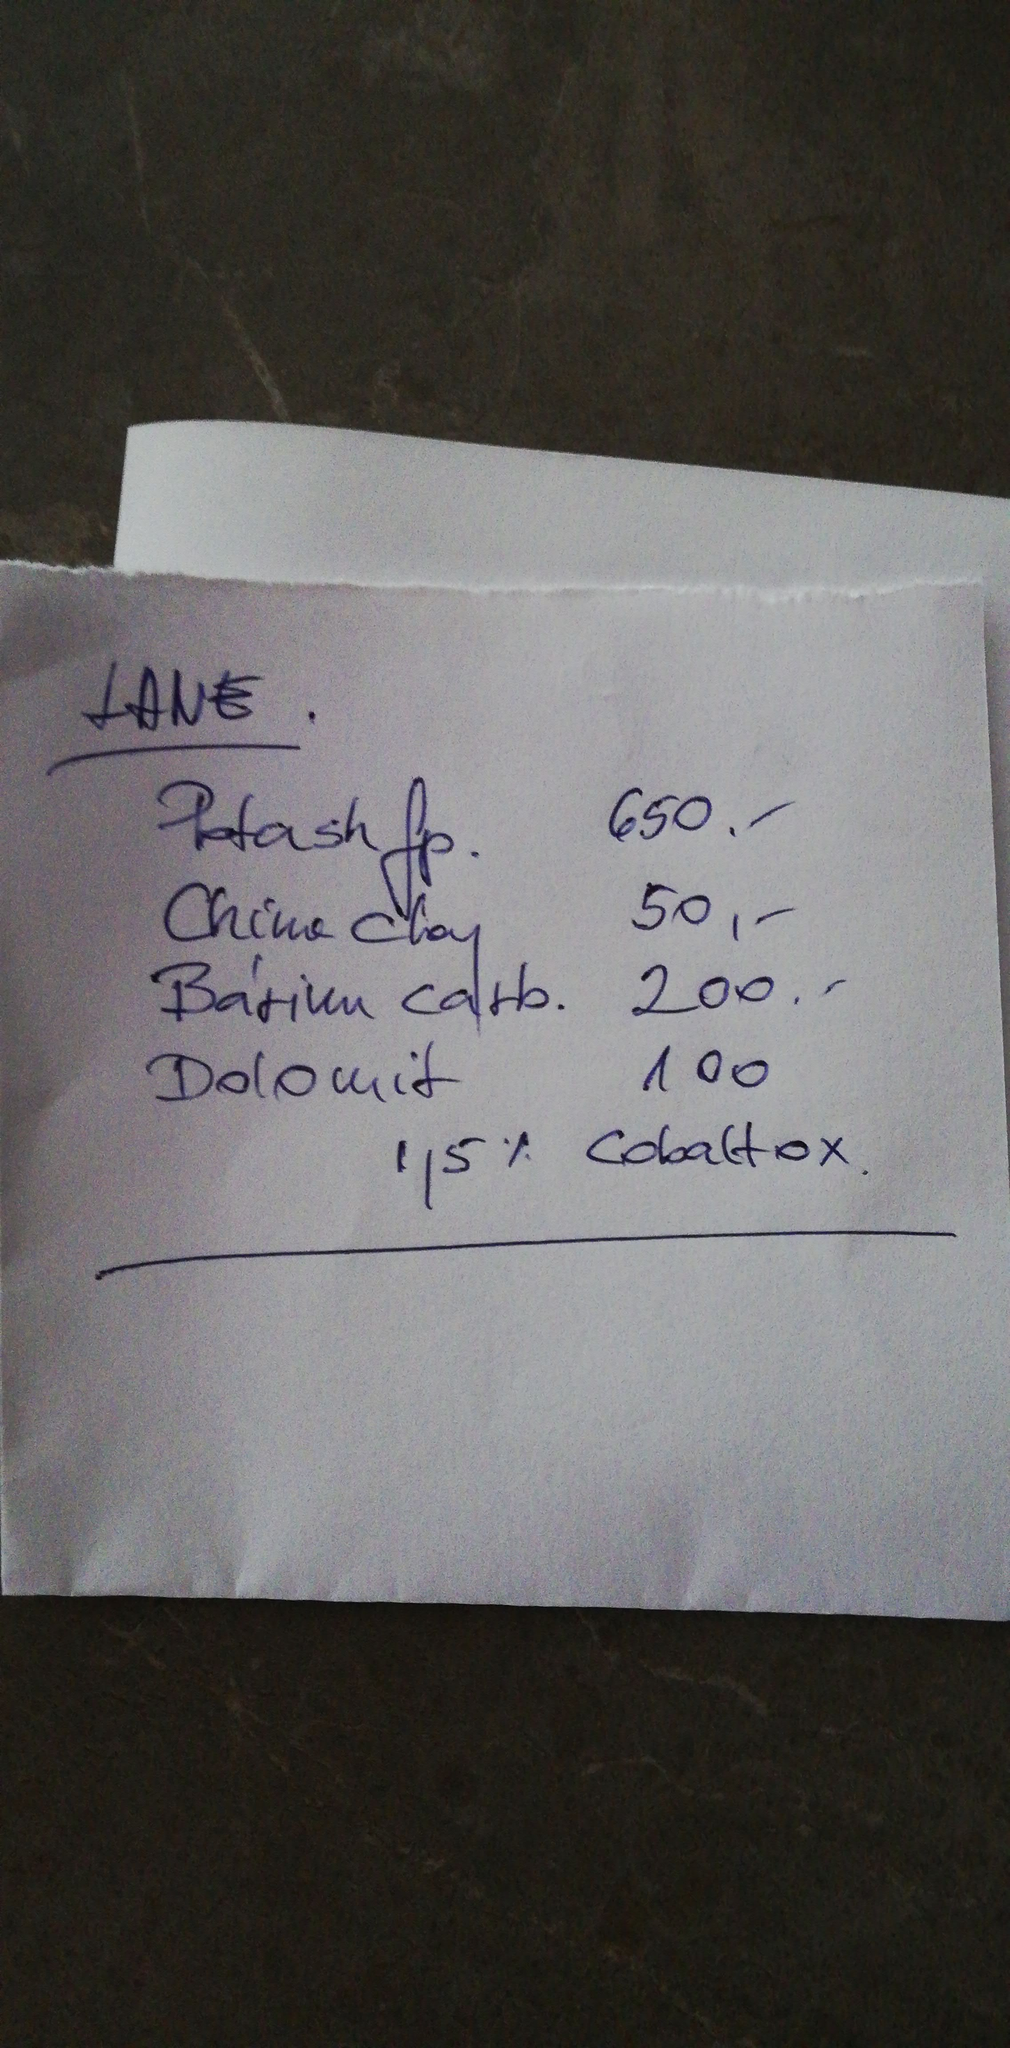 LANE.
Potash fp. 650.-
China clay 50,-
Bárium carb. 200.-
Dolomit 100
1,5% Cobaltox.